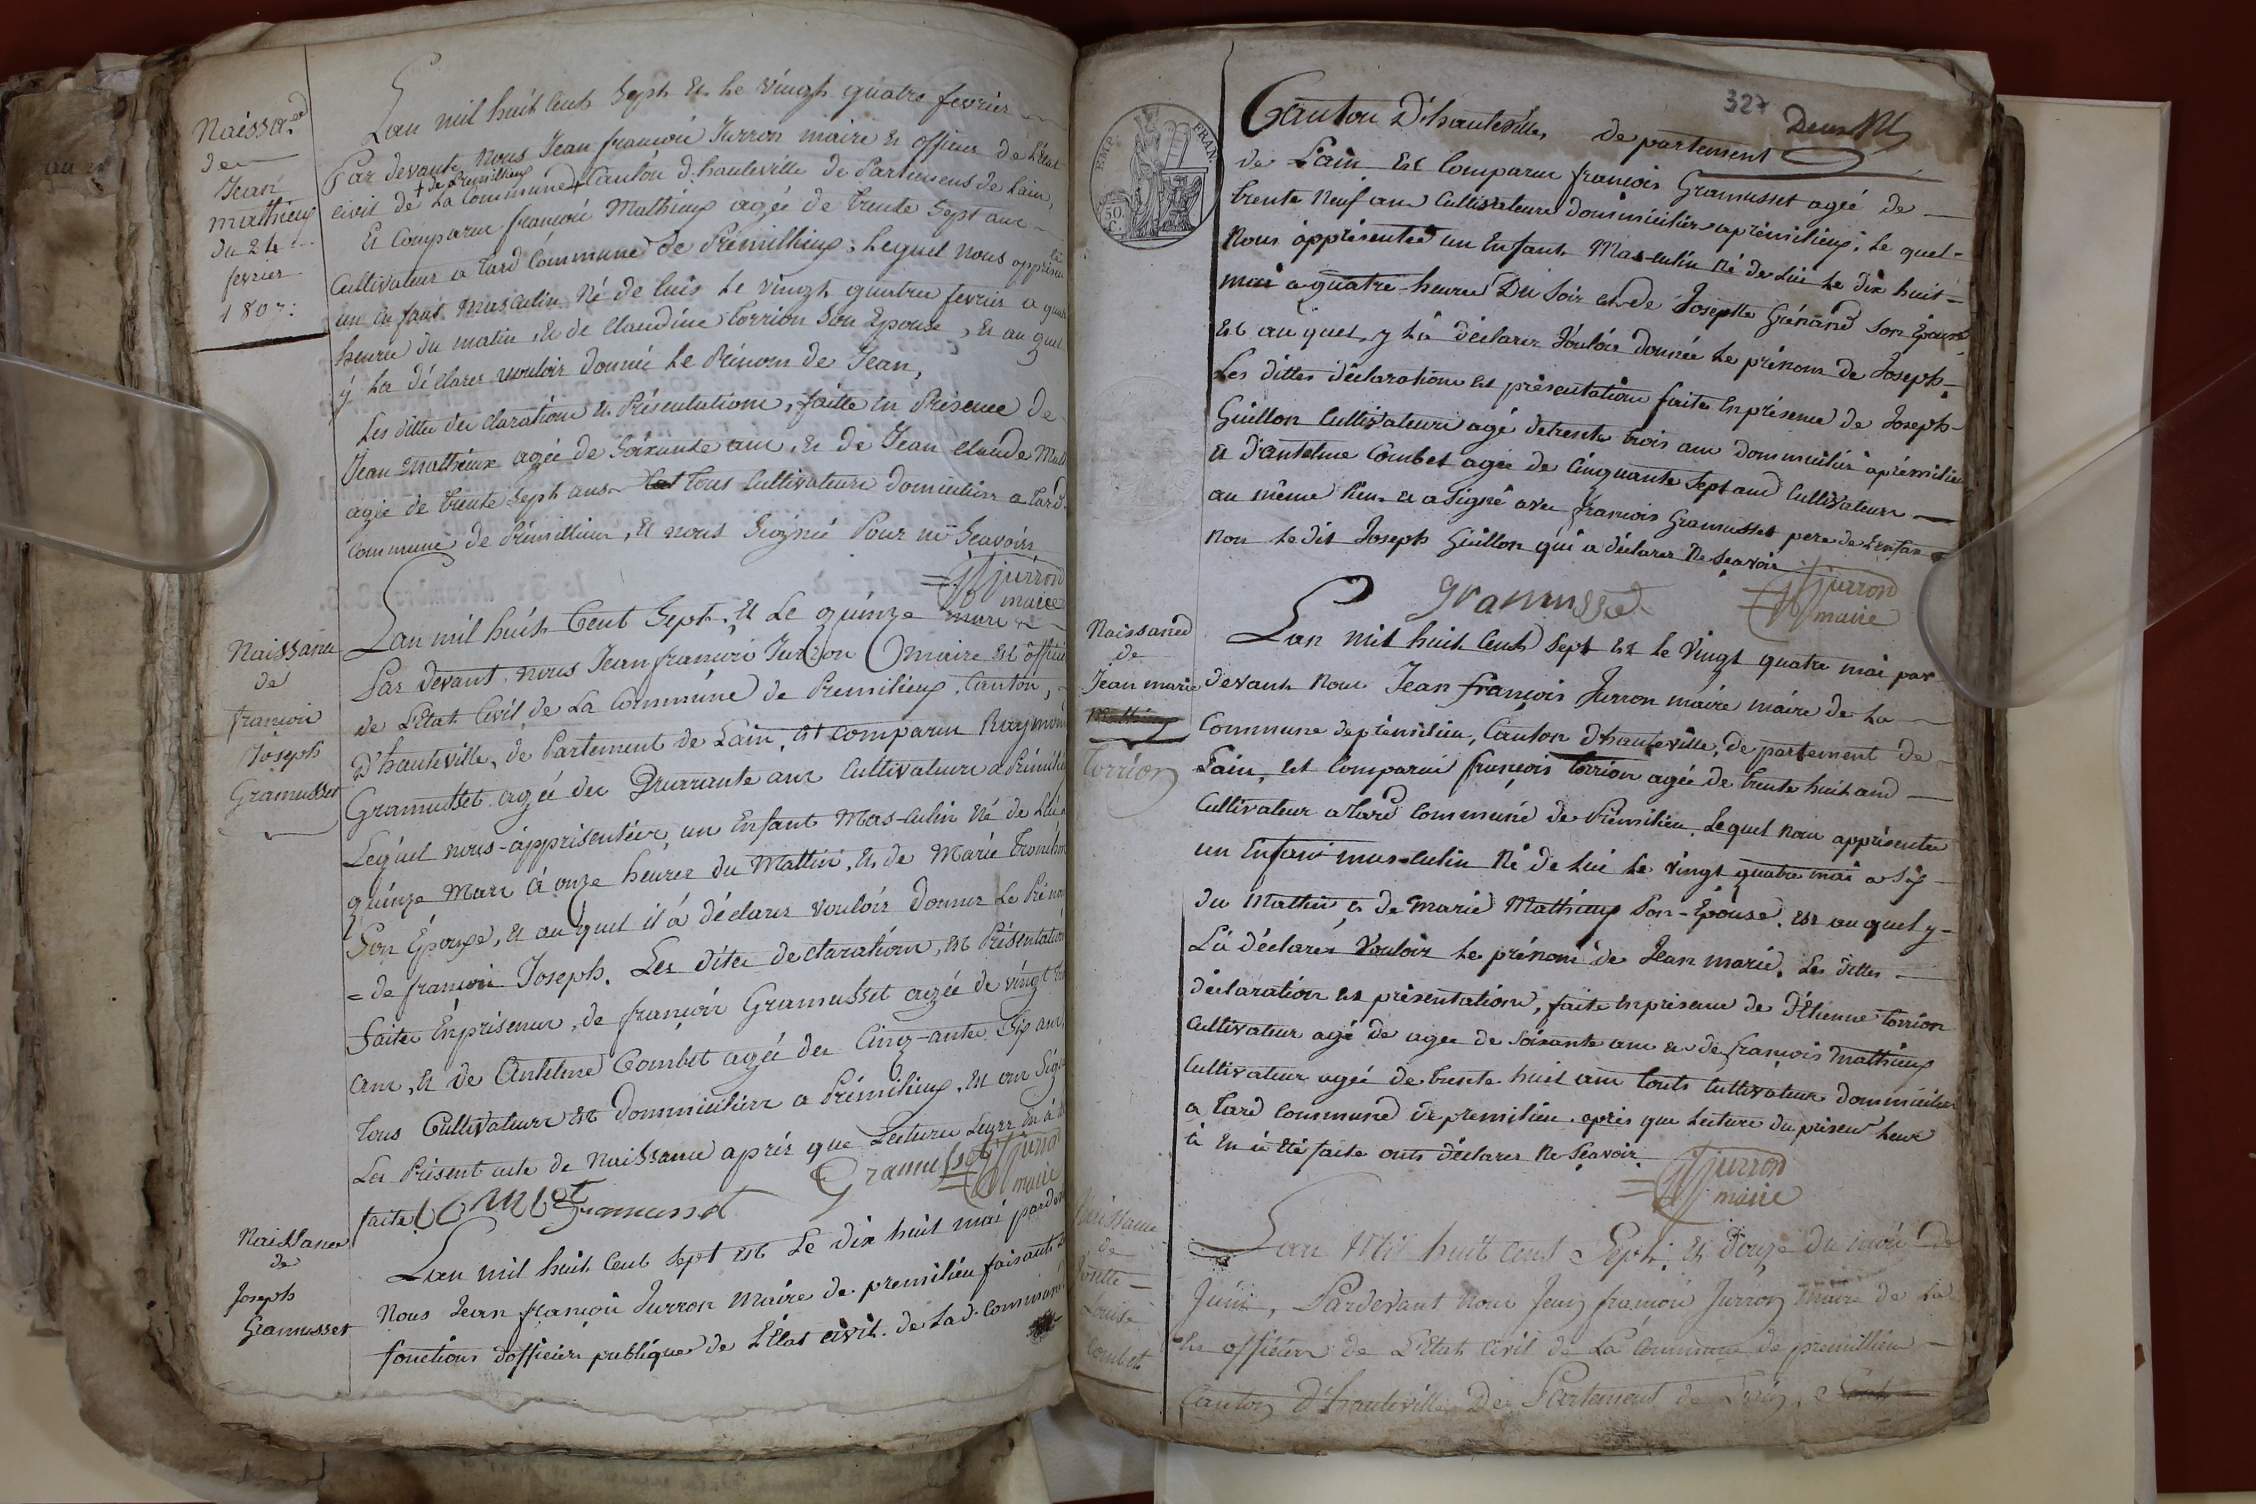 Naissa.ce
de
Jean
mathieux
du 24
fevrier
1807:
Lan mil huit Cent Sept Et Le vingt quatre fevrier
Par devante Nous Jean françois Jurron maire Et officier de L'état
civil de La Commune + de Premillieux Canton d'hauteville de Partement de Lain,
Et Comparu françois Mathieux agée de trente Sept ans
Cultivateur a Lard Commune de Premillieux; Lequel nous appresen
un Enfant Masculin Né de luis le vingt quatre fevrier a quat
heure du matin, Et de Claudine Torrion Son Epouse, Et au quel
y La déClarer vouloir donnée Le Prénom de Jean,
Les ditte deClaration Et Présentations, faitte En Présence de
Jean Mathieux agée de Soixante ans, Et de Jean Claude Mat
agée de trente Sept ans Tous Cultivateurs domicilier a Lard
Commune de Prémillieux, Et nous Soignié Pour ni Scavoir
Jurron
maire
Naissance
de
françois
Joseph
Gramusset
Lan mil huit Cent Sept, Et Le quinze mars
Par devant nous Jean françois Jurron Maire Et offici
de L'Etat Civil de La Commune de Premilieux, Canton,
D'hauteville, de Partement de Lain, Est comparu Raymon
Gramusset agée de Quarrante ans Cultivateur a Prémilie
Lequel nous apprisentéer un Enfant Mas-culin Né de Lui
quinze Mars à onze heures du Mattin, Et de Marie
Son Épouse, Et au quel il à déclarer vouloir donner Le Préno
= de françois Joseph. Les dites declaration, Et Présentation
faites Enprisence, de françois Gramusset agée de vingt
ans, Et de Antelme Combet agée de Cinq-ante Six ans,
Tous Cultivateurs Et Dommicilier a Prémilieux, Et on Sign
Le Présent acte de Naissance aprés que Lecture Leurr En à
faite Combet Gramusset Gramusset Jurron
maire
Naissance
de
Joseph
Gramusset
Lan mil huit Cent Sept Et Le dix huit mai pardev
Nous Jean françois Jurron Maire de premilieu faisant
fonctions d'officier publique de L'Etat civil de Lad. Commune
327
Deux
Canton D'hauteville, departement
de Lain Est Comparu françois Gramusset agée de
trente Neuf ans Cultivateur dommicilier aprémilieux; Le quel
Nous apprésentée un Enfant Mas-culin Né de Lui Le dix huit
mai a quatre heures Du Soir et de Josepte Grénard Son Épouse
Et au quel, y La déclarer Vouloir donnée Le prénom de Joseph
Les dittes déclaration Et présentation faite Enprésence de Joseph
Guillon Cultivateur agé detrente trois ans dommicilié aprémilieu
Et d'antelme Combet agée de Cinquante Sept ans Cultivateur
au même lieu Et a Signé avec françois Gramusset pere de L'enfan
non Le dit Joseph Guillon qui a déclarer Ne Scavoir
Gramusset
Jurron
maire
Naissance
de
Jean marie
Mathieux
Torrion
Lan mil huit Cent Sept Et Le Vingt quatre mai par
devant Nous Jean françois Jurron maire maire de La
Commune deprémilieu, Canton d'hauteville, departement de
Lain, Est Comparu françois Torrion agée de trente huit ans
Cultivateur a Lard Commune de Prémilieu, Lequel Nous apprésentée
un Enfant mas-culin Né de Lui Le Vingt quatre mai a Six
du Mattin Et de Marie Mathieux Son-Épouse, Est au quel y
La déclarer Vouloir Le prénom de Jean marie, Les dittes
déclaration Et présentation, faite Enprésence de d'Étienne Torrion
Cultivateur agé de agee de Soixante ans Et de françois Mathieux
Cultivateur agée de trente huit ans touts Cultivateur dommicilier
a Lard Commune de premilieu, aprés que Lecture du présent Leur
à En à Été faite onts déclarer Ne Scavoir
Jurron
maire
Naissance
de
Josette
Louise
Combet
Lan Mil huit Cent Sept, Et douze du mois de
Juin, Pardevant Nous Jean françois Jurron Maire de La
Et officier de L'Etat Civil de La Commune de premillieu
Canton D'hauteville De Partement de Lain,